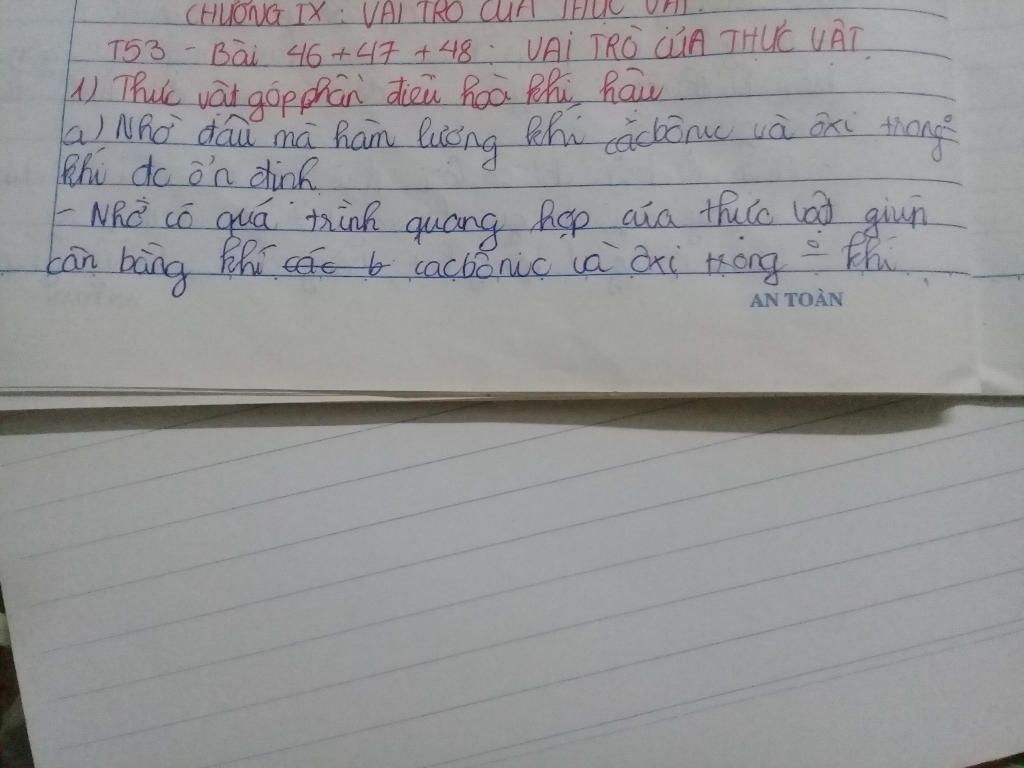 CHƯƠNG IX: VAI TRÒ CỦA THỰC VẬT
T53 - Bài 46+47+48: VAI TRÒ CỦA THỰC VẬT
1) Thực vật góp phần điều hoà khí hậu
a) Nhờ đâu mà hàm lượng khí cácbônic và ôxi trong
khí đc ổn định
- Nhờ có quá trình quang hợp của thực vật giúp
cân bằng khí các b cacbônic và ôxi trong khí
AN TOÀN